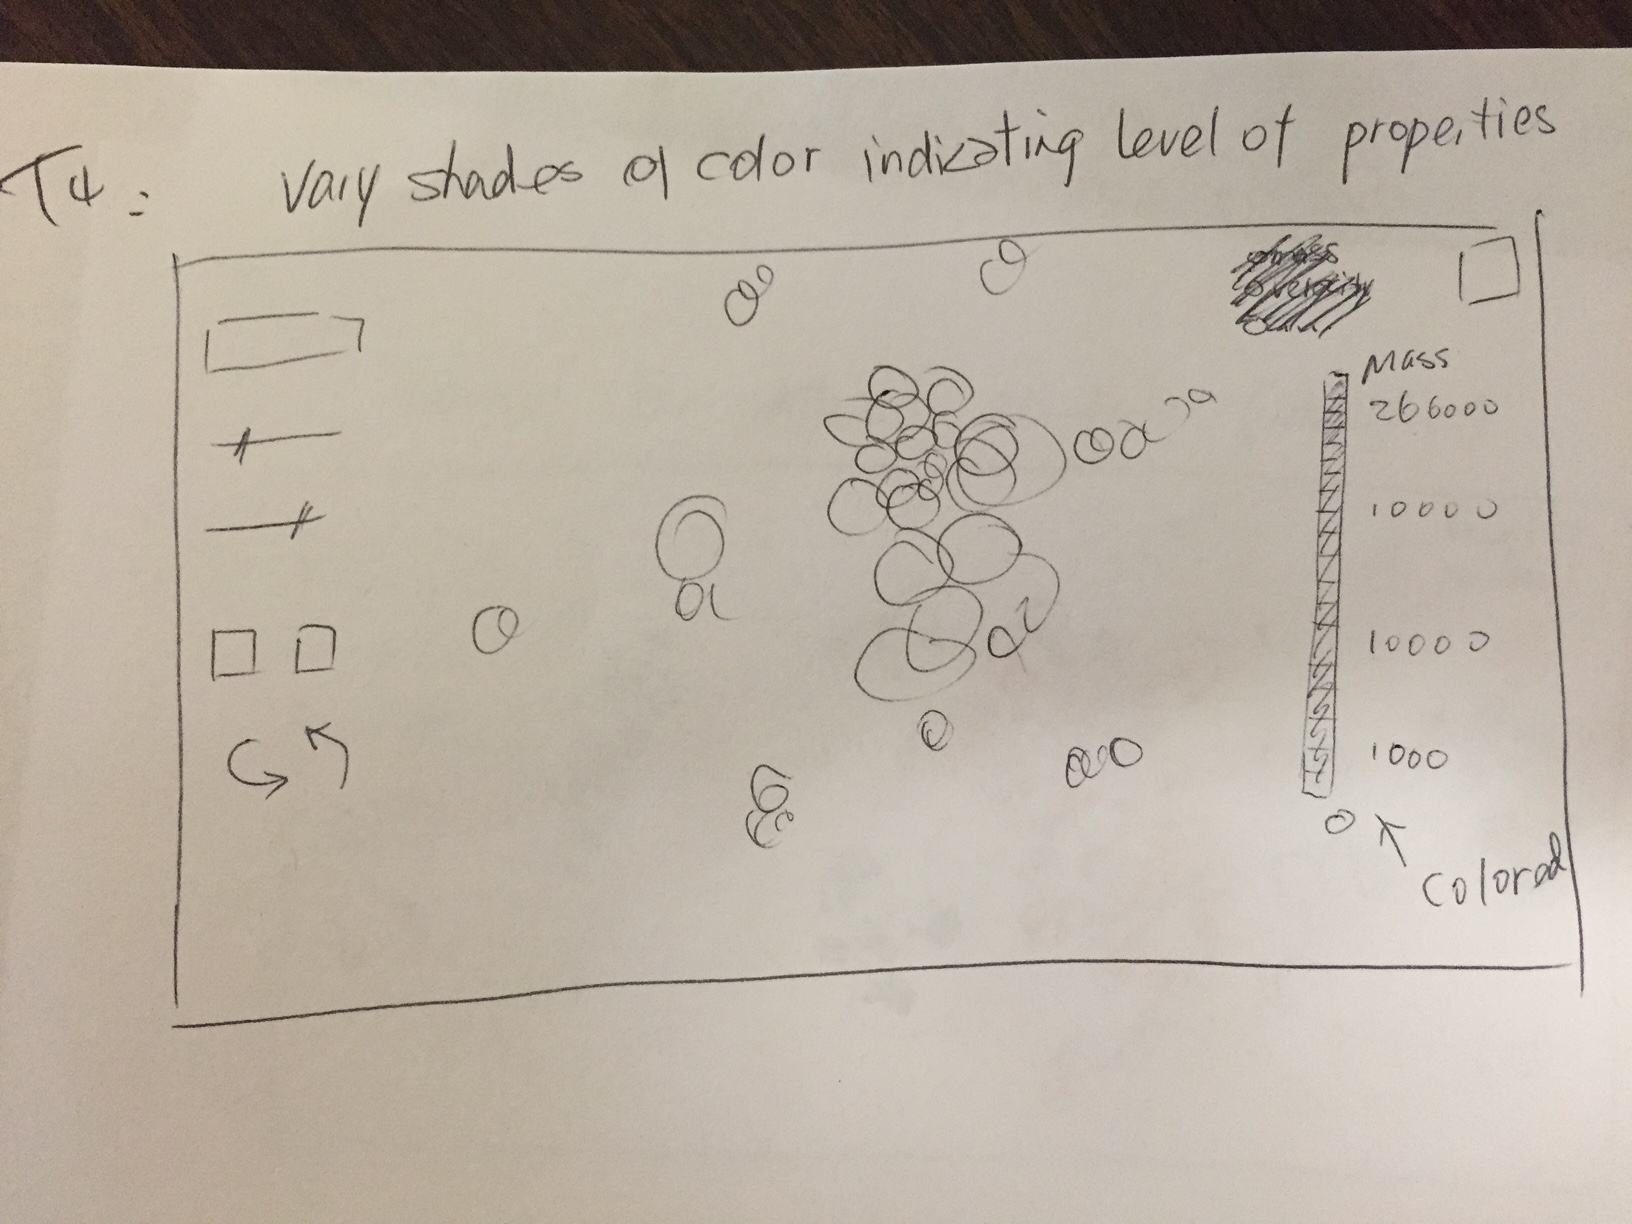 T4: Vary shades of color indicating level of properties
Mass
266000
10000
10000
1000
0
Colorad